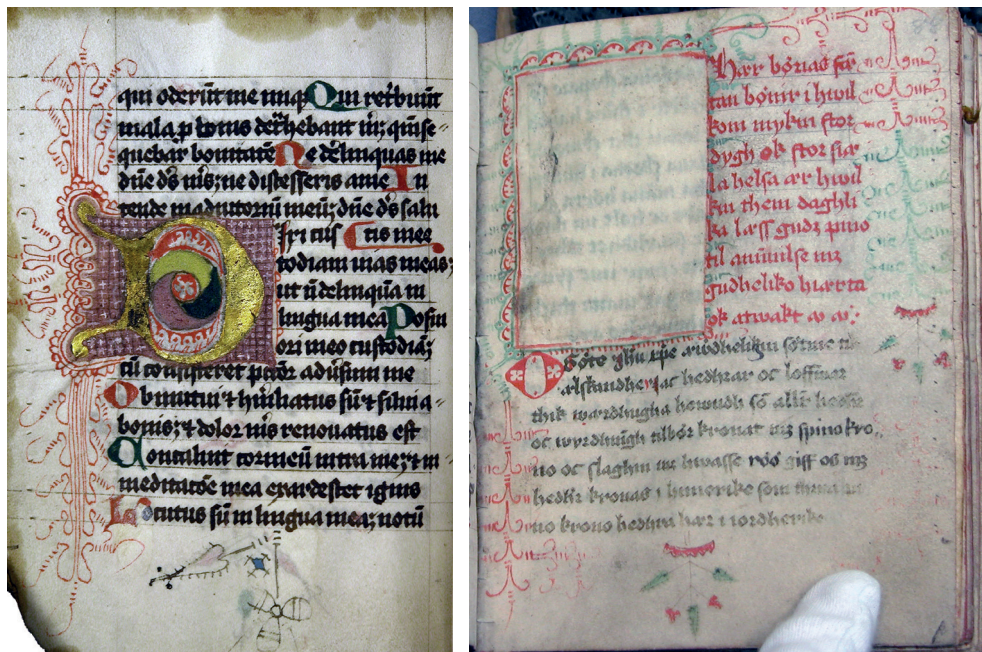 qui oderūt me iniq̄ Qui retribuūt
mala p bonis detrahebant m̄; qm̄ se
quebar bonitatē Ne delinquas me
dn̄e ds̄ ms̄; ne discesseris a me In
tende in adiutoriū meū; dn̄e ds̄ salu
tis mee
Dixi cus
todiam uias meas;
ut n̄ delinquā in
lingua mea Posui
ori meo custodiā;
cū consisteret pctōr aduersum me
Obmutui & huīliatus sū & silui a
bonis; & dolor ms̄ renouatus est
Concaluit cor meū intra me; & in
meditatōe mea exardescet ignis
Locutus sū in lingua mea; notū
Hær börias
tan bönir i hwil
kom mykin stor
dygh ok stor siæ
la helsa ær hwil
kin them daghli
ka læss gudz pino
til aminnilse mz
gudheliko hiærta
ok atwakt
O söte ihu xpe
alskundhe
thik wærdhugha howudh
oc wyrdhnigh til bör kronat mz spino kro
no oc slaghin mz hwasse rös giff os mz
hedhr kronas i himerike som
no krono hedhra hær i iordherike